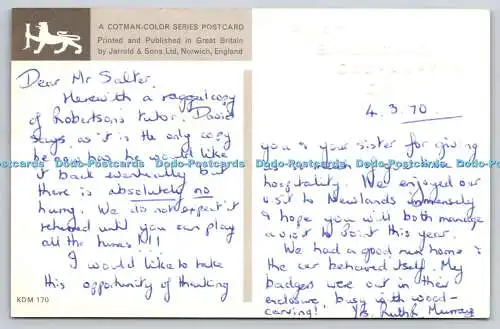 A COTMAN-COLOR SERIES POSTCARD
Printed and Published in Great Britain
by Jarrold & Sons Ltd, Norwich, England
Dear Mr Salter,
Herewith a ragged copy
of Robertsons tutor. David
says, as it is the only copy
he now has, he would like
it back eventually but
there is absolutely no
hurry. We do not expect it
returned until you can play
all the tunes !!!
I would like to take
this opportunity of thanking
KDM 170
4.3.70.
you & your sister for giving
us
hospitality. We enjoyed our
visit to Newlands immensely
& hope you will both manage
a visit to Joint this year.
We had a good run home &
the car behaved itself. My
badgers were out in their
enclosure, busy with wood-
carving! Yrs. Ruth L. Murray
Dodo-Postcards Dodo-Postcards Dodo-Postcards Dodo-Postcards